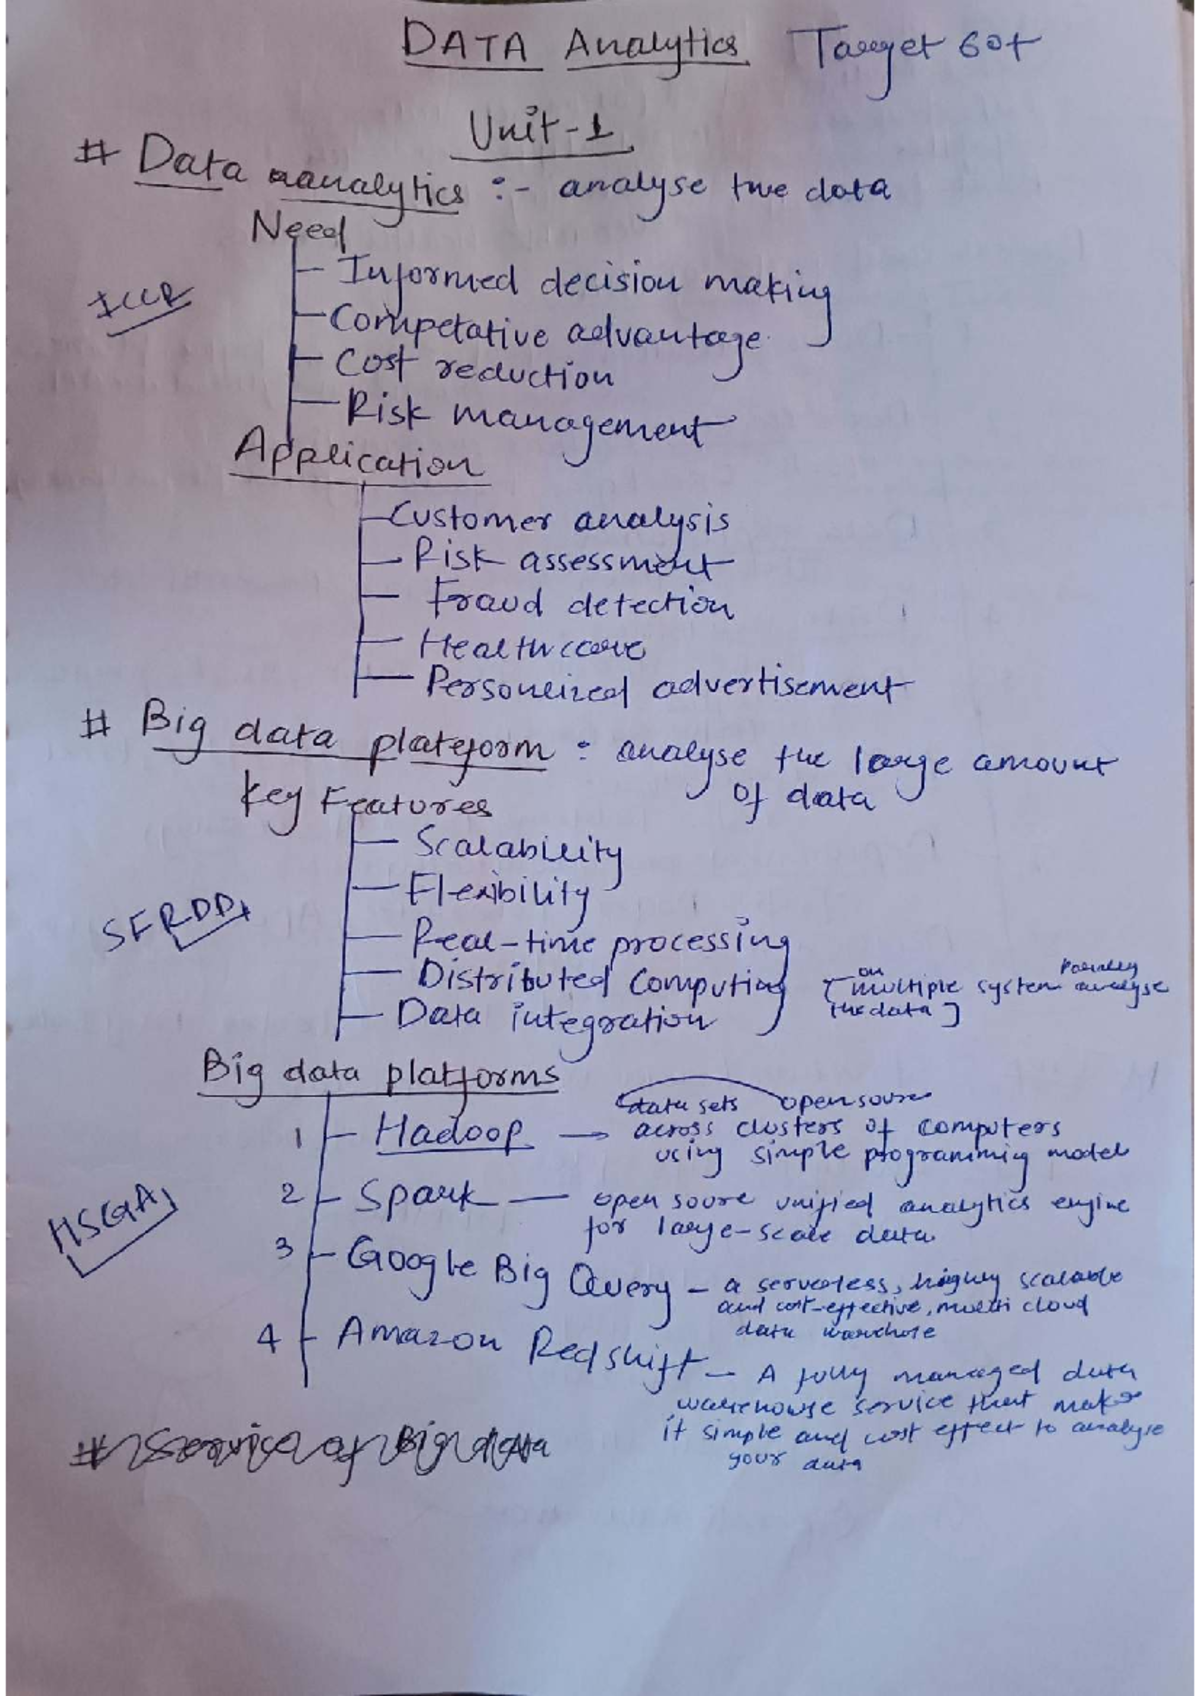 DATA Analytics Target 60+
Unit-1
# Data analytics :- analyse the data
Need
Informed decision making
ICCR
Competative advantage
Cost reduction
Risk management
Application
Customer analysis
Risk assessment
Fraud detection
Healthcare
Personlized advertisement
# Big data plateform : analyse the large amount
of data
Key Features
Scalability
Flexibility
SFRDD
Real-time processing
Distributed Computing [on multiple system parallely analyse
the data]
Data integration
Big data platforms
data sets open soure
1 Hadoop → across clusters of computers
using simple programming model
HSGA
2 Spark — open soure unified analytics engine
for large-scale data
3 Google Big Query - a serverless, highly scalable
and cost-effective, multi cloud
data warehole
4 Amazon Redshift - A fully managed data
warehouse service that makes
it simple and cost effect to analyse
your data
# Service of Big data